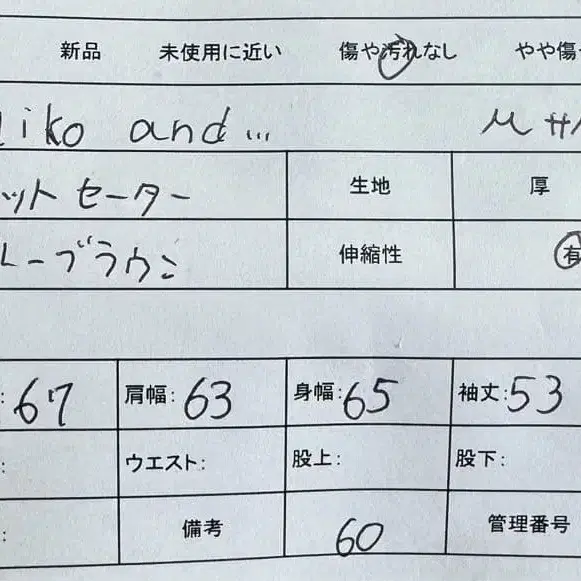 新品 未使用に近い 傷や汚れなし やや傷
iko and... Mサ
ットセーター 生地 厚
レーブラウン 伸縮性 有
: 67 肩幅: 63 身幅: 65 袖丈: 53
: ウエスト: 股上: 股下:
: 備考 60 管理番号